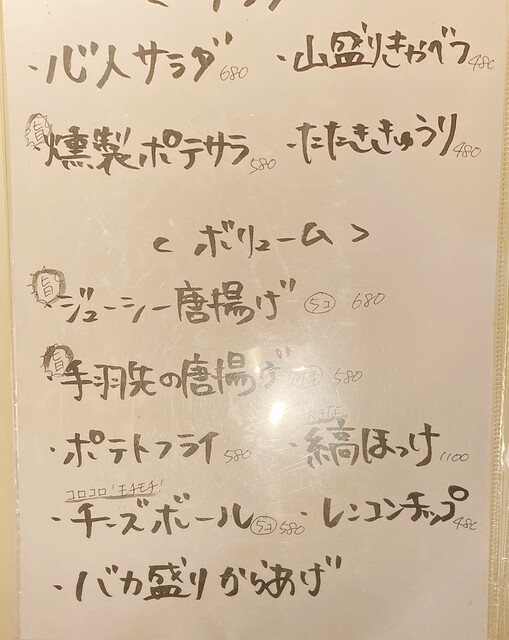 ・心人サラダ 680 ・山盛りきゃべつ 480
旨 燻製ポテサラ 580 ・たたききゅうり 480
< ボリューム >
旨 ジューシー唐揚げ 5コ 680
旨 手羽先の唐揚げ 580
・ポテトフライ 580 ・縞ほっけ 1100
コロコロ!モチモチ!
・チーズボール 5コ 580 ・レンコンチップ 480
・バカ盛りからあげ